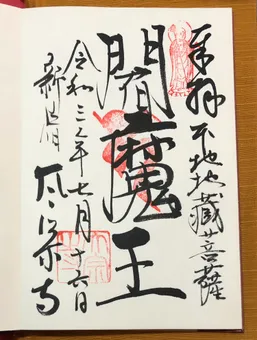 奉拝 本地地藏菩薩
閻魔王
令和三年七月十六日
新宿 太宗寺